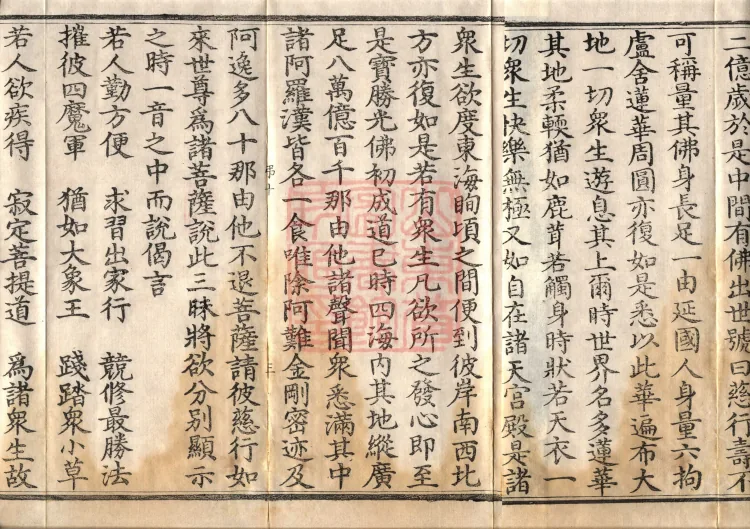 二億歲於是中間有佛出世號曰慈行壽不
可稱量其佛身長足一由延國人身量六拘
盧舍蓮華周圓亦復如是悉以此華遍布大
地一切衆生遊息其上爾時世界名多蓮華
其地柔輭猶如鹿茸若觸身時狀若天衣一
切衆生快樂無極又如自在諸天宮殿是諸
衆生欲度東海眴頃之間便到彼岸南西北
方亦復如是若有衆生凡欲所之發心即至
是寶勝光佛初成道已時四海內其地縱廣
足八萬億百千那由他諸聲聞衆悉滿其中
諸阿羅漢皆各一食唯除阿難金剛密迹及
弔十 三
阿逸多八十那由他不退菩薩請彼慈行如
來世尊爲諸菩薩說此三昧將欲分别顯示
之時一音之中而說偈言
若人勤方便 求習出家行 競修最勝法
摧彼四魔軍 猶如大象王 踐踏衆小草
若人欲疾得 寂定菩提道 爲諸衆生故